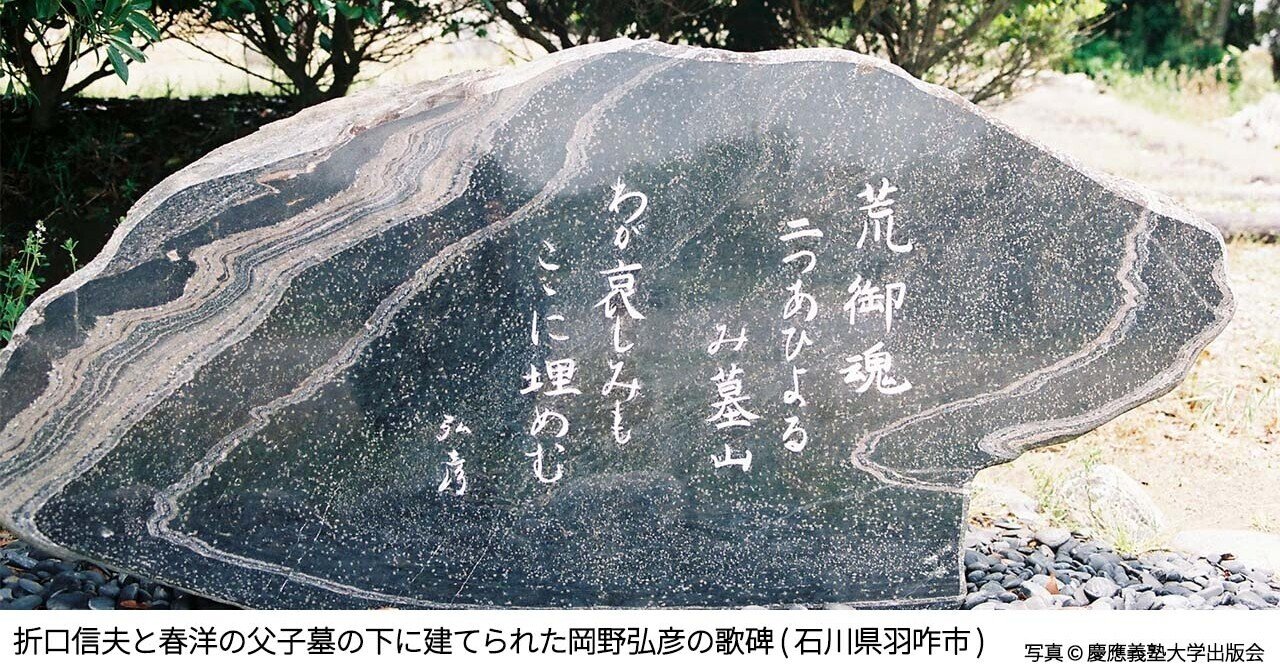 荒御魂
二つあひよる
み墓山
わが哀しみも
こゝに埋めむ
弘彦
折口信夫と春洋の父子墓の下に建てられた岡野弘彦の歌碑(石川県羽咋市)
写真©慶應義塾大学出版会